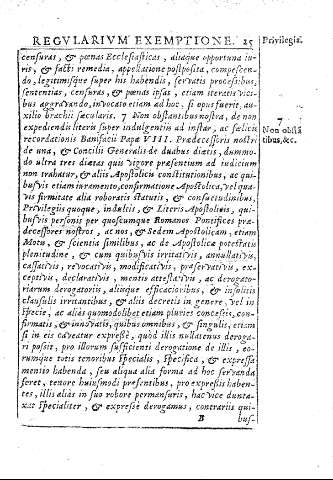 REGVLARIVM EXEMPTIONE. 25
Privilegia
censuras, & pœnas Ecclesiasticas, aliaque opportuna iu-
ris, & facti remedia, appellatione postposita, compescen-
do, legitimisque super his habendis, servatis processibus,
sententias, censuras, & pœnas ipsas, etiam iteratis vici-
bus aggravando, invocato etiam ad hoc, si opus fuerit, au-
xilio brachii sæcularis. 7 Non obstantibus nostra, de non
expediendis literis super indulgentiis ad instar, ac fælicis
recordationis Bonifacii Papæ VIII. Prædecessoris nostri
de una, & Concilii Generalis de duabus dietis, dummo-
do ultra tres dietas quis vigore præsentium ad iudicium
non trahatur, & aliis Apostolicis constitutionibus, ac qui-
busvis etiam iuramento, confirmatione Apostolica, vel qua-
vis firmitate alia roboratis statutis, & consuetudinibus,
Privilegiis quoque, indultis, & Literis Apostolicis, qui-
busvis personis per quoscumque Romanos Pontifices præ-
decessores nostros, ac nos, & Sedem Apostolicam, etiam
Motu, & scientia similibus, ac de Apostolicæ potestatis
plenitudine, & cum quibusvis irritativis, annullativis,
cassativis, revocativis, modificativis, præservativis, ex-
ceptivis, declarativis, mentis attestativis, ac derogato-
riarum derogatoriis, aliisque efficacioribus, & insolitis
clausulis irritantibus, & aliis decretis in genere, vel in
specie, ac aliàs quomodolibet etiam pluries concessis, con-
firmatis, & innovatis, quibus omnibus, & singulis, etiam
si in eis caveatur expressè, quòd illis nullatenus deroga-
ri possit, pro illorum sufficienti derogatione de illis, eo-
rumque totis tenoribus specialis, specifica, & expressa
mentio habenda, seu aliqua alia forma ad hoc servanda
foret, tenore huiusmodi præsentibus, pro expressis haben-
tes, illis aliàs in suo robore permansuris, hac vice dunta-
xat specialiter, & expressè derogamus, contrariis qui-
B bus-
7
Non obstā
tibus, &c.